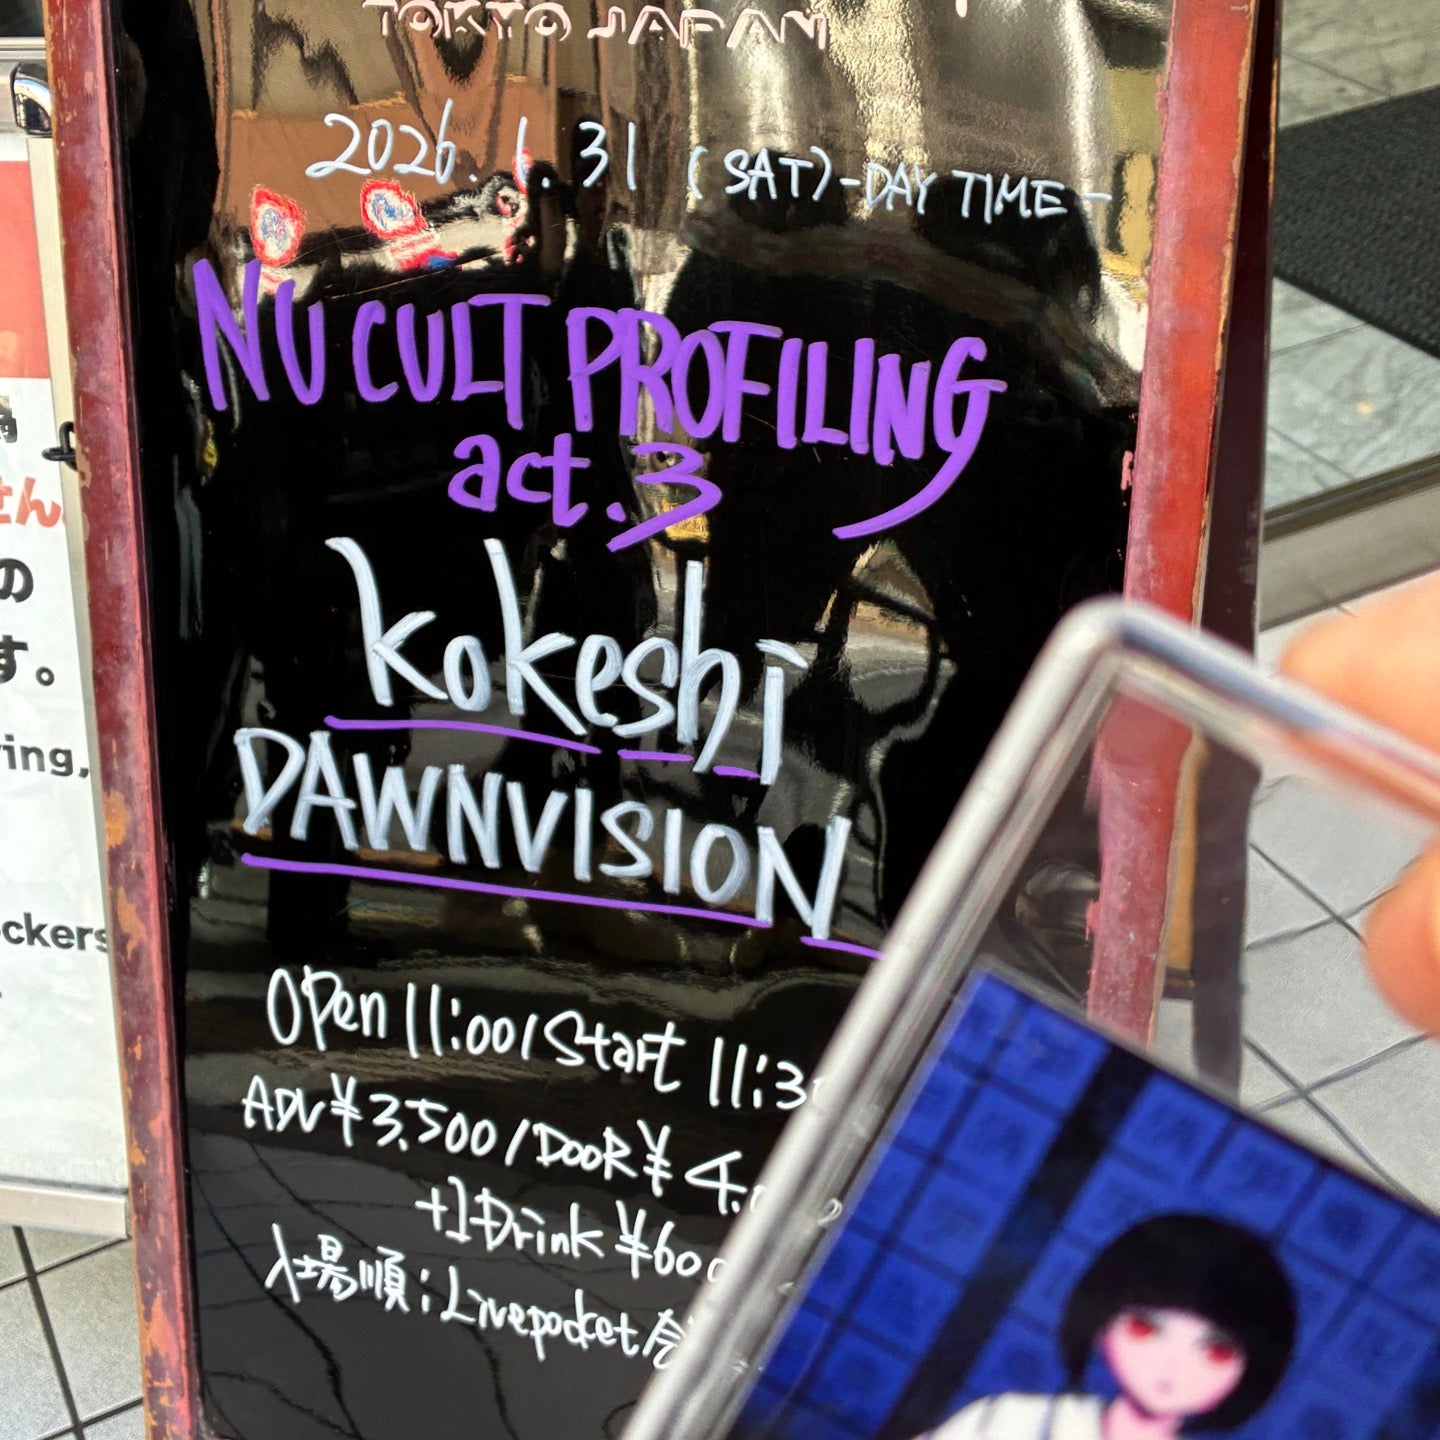 TOKYO JAPAN
2026. 1. 31 (SAT) -DAY TIME-
NU CULT PROFILING
act.3
kokeshi
DAWNVISION
OPen 11:00 / Start 11:3
ADV ¥3,500 / DOOR ¥4.
+1Drink ¥60
入場順:Livepocket
さん
の
す。
ing,
ckers